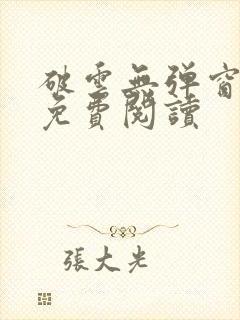 破雲無彈窗
免費閱讀
張大光